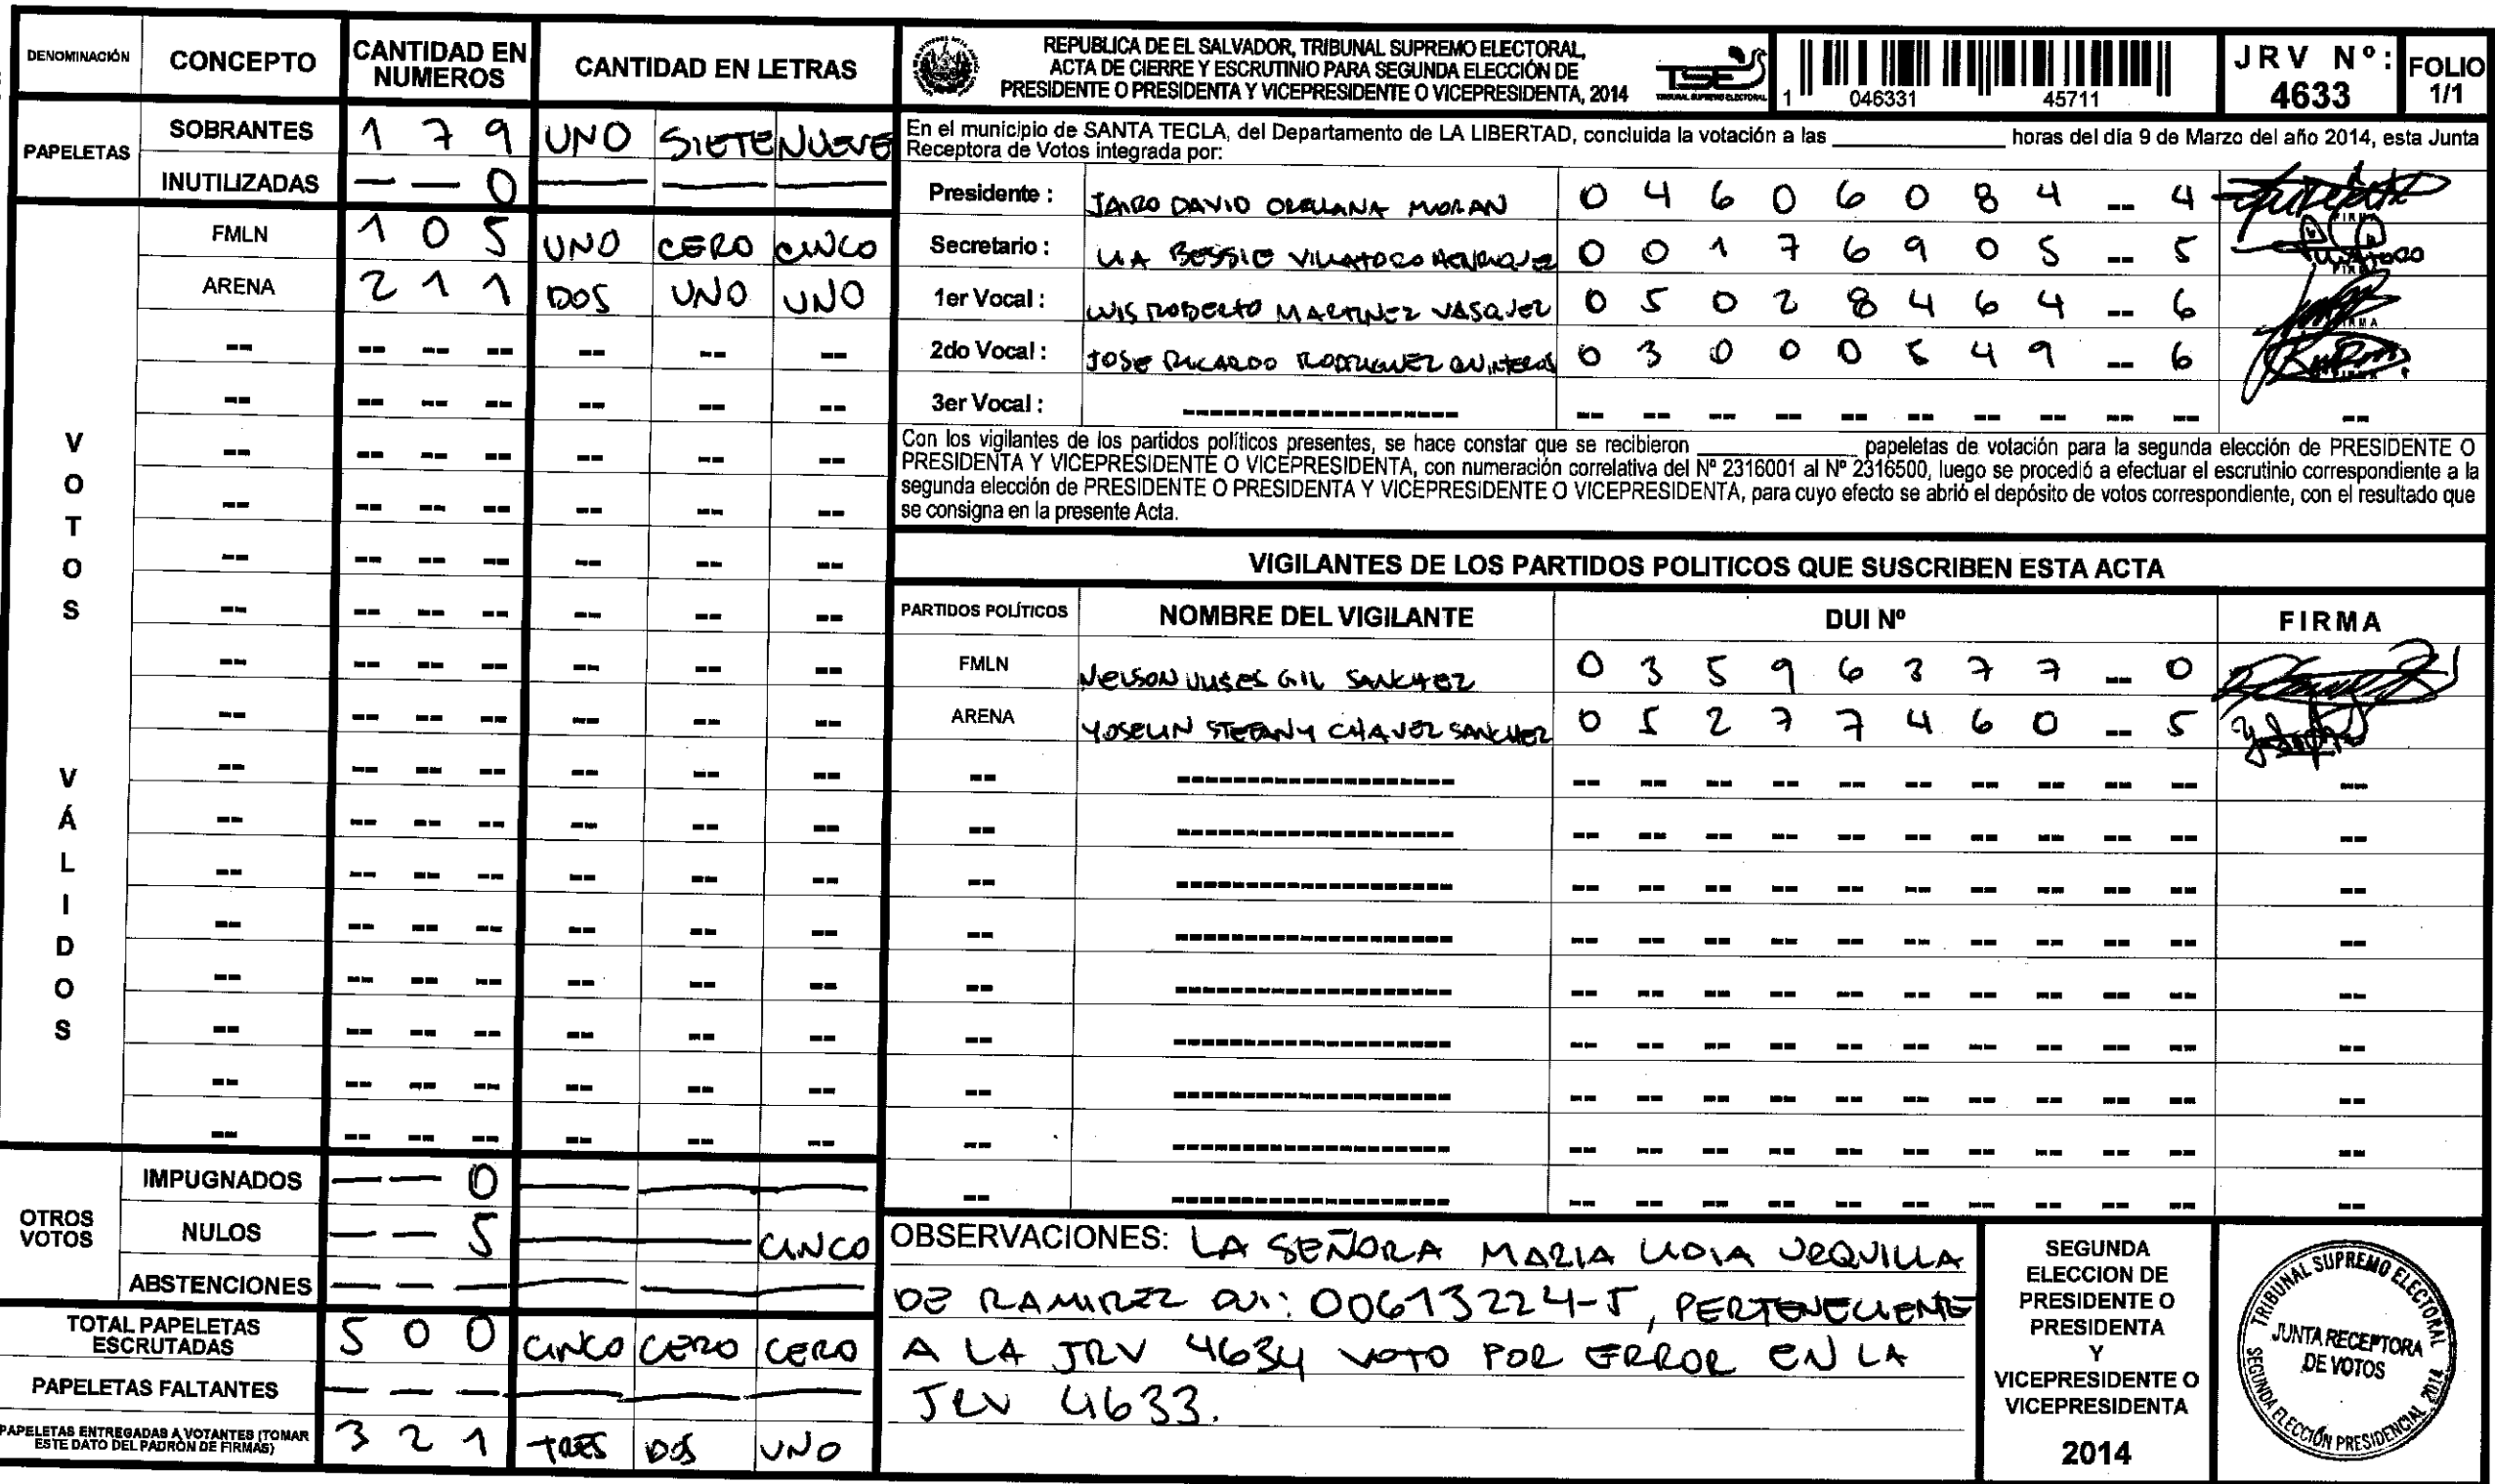 DENOMINACIÓN CONCEPTO CANTIDAD EN NUMEROS CANTIDAD EN LETRAS
PAPELETAS
SOBRANTES 1 7 9 UNO SIETE NUEVE
INUTILIZADAS — — 0 — — —
VOTOS VÁLIDOS
FMLN 1 0 5 UNO CERO CINCO
ARENA 2 1 1 DOS UNO UNO
OTROS VOTOS
IMPUGNADOS — — 0 — — —
NULOS — — 5 — — CINCO
ABSTENCIONES — — — — — —
TOTAL PAPELETAS ESCRUTADAS 5 0 0 CINCO CERO CERO
PAPELETAS FALTANTES — — — — — —
PAPELETAS ENTREGADAS A VOTANTES (TOMAR ESTE DATO DEL PADRÓN DE FIRMAS) 3 2 1 TRES DOS UNO
REPUBLICA DE EL SALVADOR, TRIBUNAL SUPREMO ELECTORAL,
ACTA DE CIERRE Y ESCRUTINIO PARA SEGUNDA ELECCIÓN DE
PRESIDENTE O PRESIDENTA Y VICEPRESIDENTE O VICEPRESIDENTA, 2014
TSE
TRIBUNAL SUPREMO ELECTORAL
1 046331 45711
JRV Nº: 4633
FOLIO 1/1
En el municipio de SANTA TECLA, del Departamento de LA LIBERTAD, concluida la votación a las ____________ horas del día 9 de Marzo del año 2014, esta Junta
Receptora de Votos integrada por:
Presidente : JAIRO DAVID ORELLANA MORAN 0 4 6 0 6 0 8 4 -- 4
Secretario : LIA BESSIE VILLATORO HENRIQUEZ 0 0 1 7 6 9 0 5 -- 5
1er Vocal : LUIS ROBERTO MARTINEZ VASQUEZ 0 5 0 2 8 4 6 4 -- 6
2do Vocal : JOSE RICARDO RODRIGUEZ QUINTEROS 0 3 0 0 0 5 4 9 -- 6
3er Vocal :
Con los vigilantes de los partidos políticos presentes, se hace constar que se recibieron ____________ papeletas de votación para la segunda elección de PRESIDENTE O
PRESIDENTA Y VICEPRESIDENTE O VICEPRESIDENTA, con numeración correlativa del Nº 2316001 al Nº 2316500, luego se procedió a efectuar el escrutinio correspondiente a la
segunda elección de PRESIDENTE O PRESIDENTA Y VICEPRESIDENTE O VICEPRESIDENTA, para cuyo efecto se abrió el depósito de votos correspondiente, con el resultado que
se consigna en la presente Acta.
VIGILANTES DE LOS PARTIDOS POLITICOS QUE SUSCRIBEN ESTA ACTA
PARTIDOS POLÍTICOS NOMBRE DEL VIGILANTE DUI Nº FIRMA
FMLN NELSON ULISES GIL SANCHEZ 0 3 5 9 6 3 7 7 -- 0
ARENA YOSELIN STEFANY CHAVEZ SANCHEZ 0 5 2 7 7 4 6 0 -- 5
OBSERVACIONES: LA SEÑORA MARIA LIDIA URQUILLA
DE RAMIREZ DUI: 00613224-5, PERTENECIENTE
A LA JRV 4634 VOTO POR ERROR EN LA
JRV 4633.
SEGUNDA
ELECCION DE
PRESIDENTE O
PRESIDENTA
Y
VICEPRESIDENTE O
VICEPRESIDENTA
2014
TRIBUNAL SUPREMO ELECTORAL
JUNTA RECEPTORA
DE VOTOS
SEGUNDA ELECCIÓN PRESIDENCIAL 2014